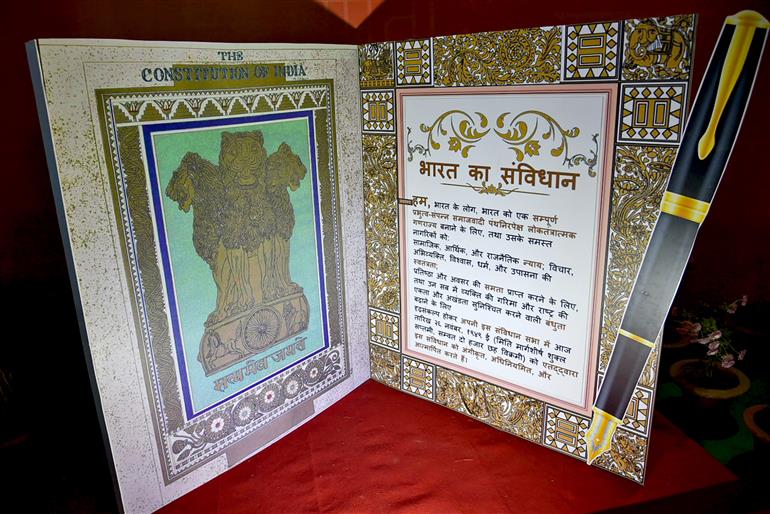 THE
CONSTITUTION OF INDIA
सत्यमेव जयते
भारत का संविधान
हम, भारत के लोग, भारत को एक सम्पूर्ण
प्रभुत्व-संपन्न समाजवादी पंथनिरपेक्ष लोकतंत्रात्मक
गणराज्य बनाने के लिए, तथा उसके समस्त
नागरिकों को:
सामाजिक, आर्थिक, और राजनैतिक न्याय; विचार,
अभिव्यक्ति, विश्वास, धर्म, और उपासना की
स्वतंत्रता;
प्रतिष्ठा और अवसर की समता प्राप्त करने के लिए,
तथा उन सब में व्यक्ति की गरिमा और राष्ट्र की
एकता और अखंडता सुनिश्चित करने वाली बंधुता
बढ़ाने के लिए
दृढ़संकल्प होकर अपनी इस संविधान सभा में आज
तारीख २६ नवंबर, १९४९ ई (मिति मार्गशीर्ष शुक्ल
सप्तमी, सम्वत दो हजार छह विक्रमी) को एतद्द्वारा
इस संविधान को अंगीकृत, अधिनियमित, और
आत्मार्पित करते हैं।